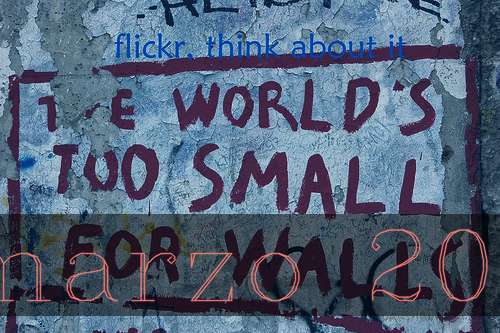 flickr, think about it
THE WORLD'S
TOO SMALL
FOR WALLS
marzo 20